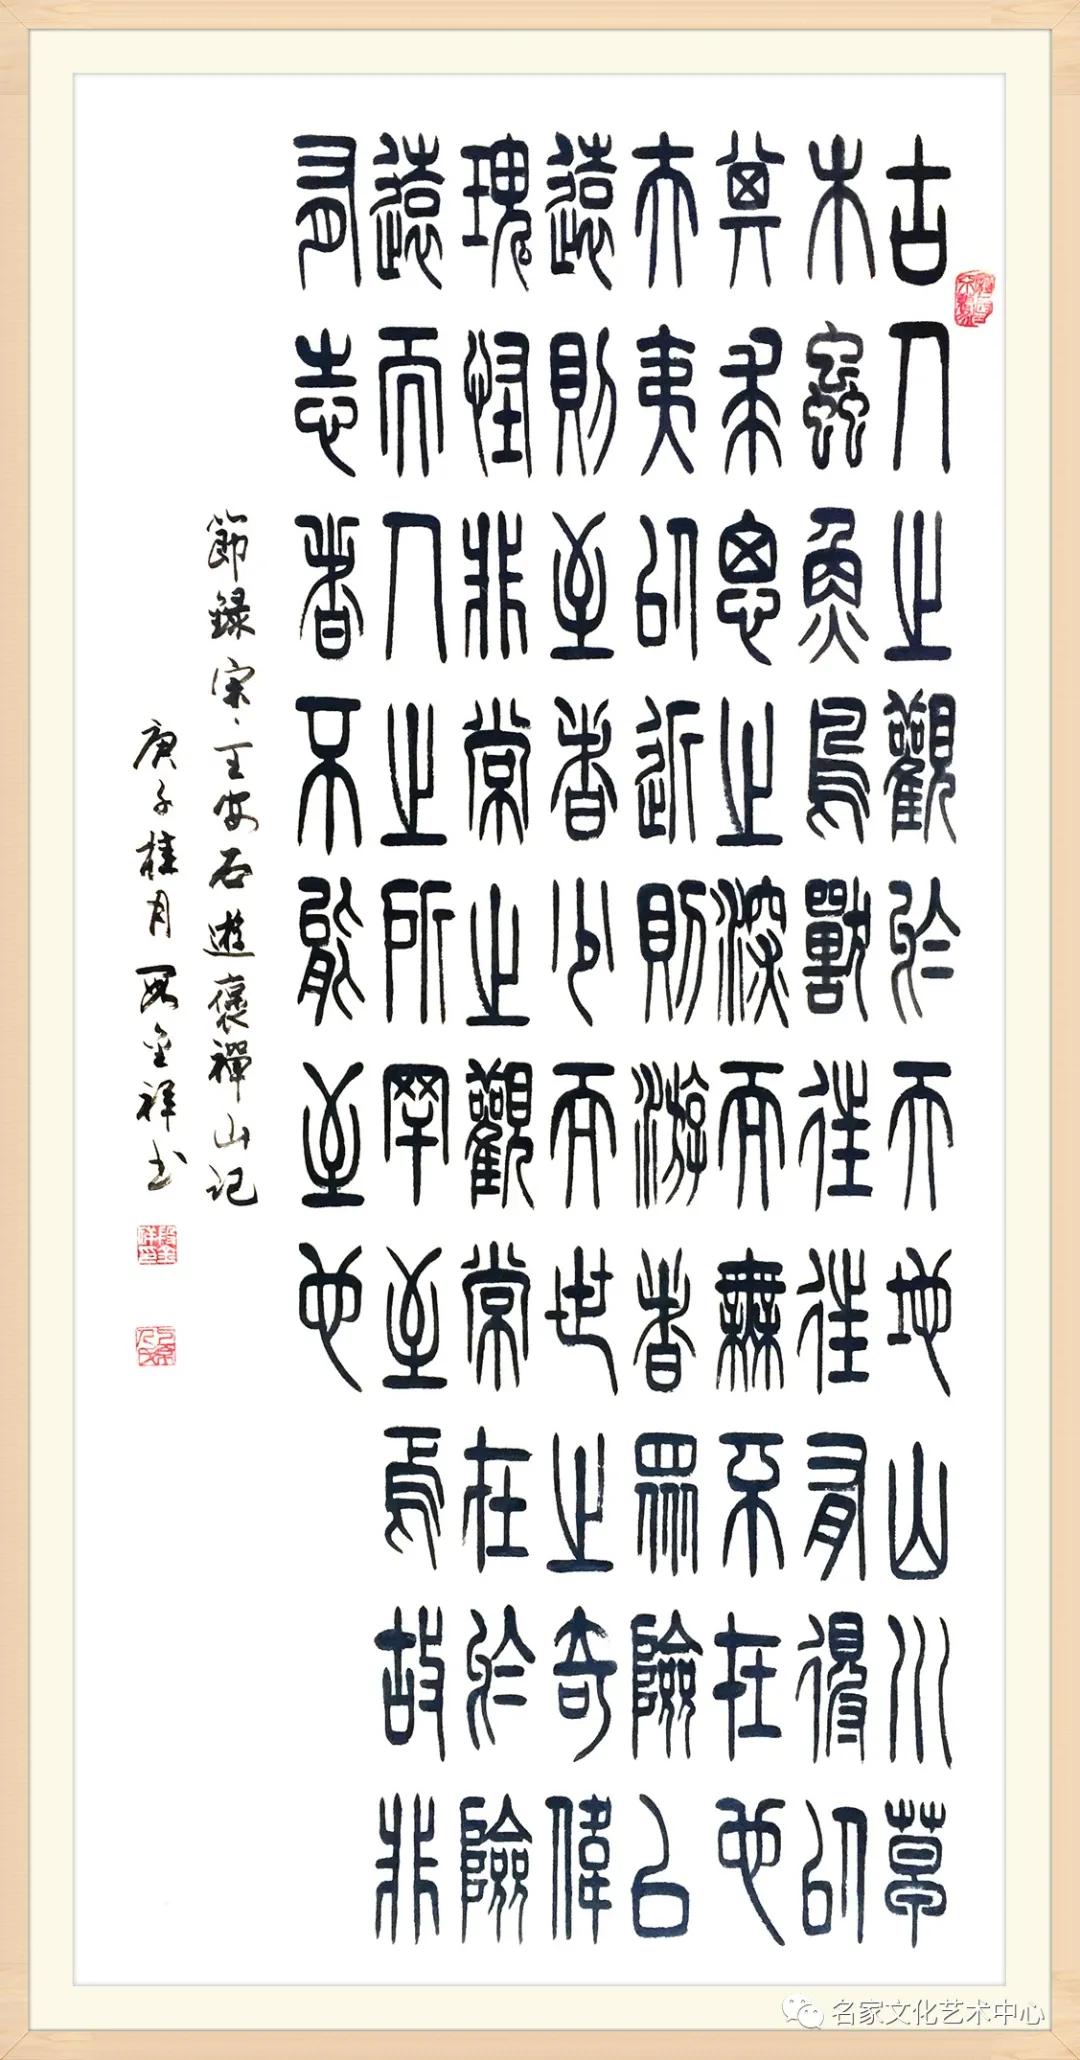 古人之觀於天地山川草
木蟲魚鳥獸往往有得以
其求思之深而無不在也
夫夷以近則游者眾險以
遠則至者少而世之奇偉
瑰怪非常之觀常在於險
遠而人之所罕至焉故非
有志者不能至也
節録宋·王安石遊褒禪山記
庚子桂月段金祥书
名家文化艺术中心